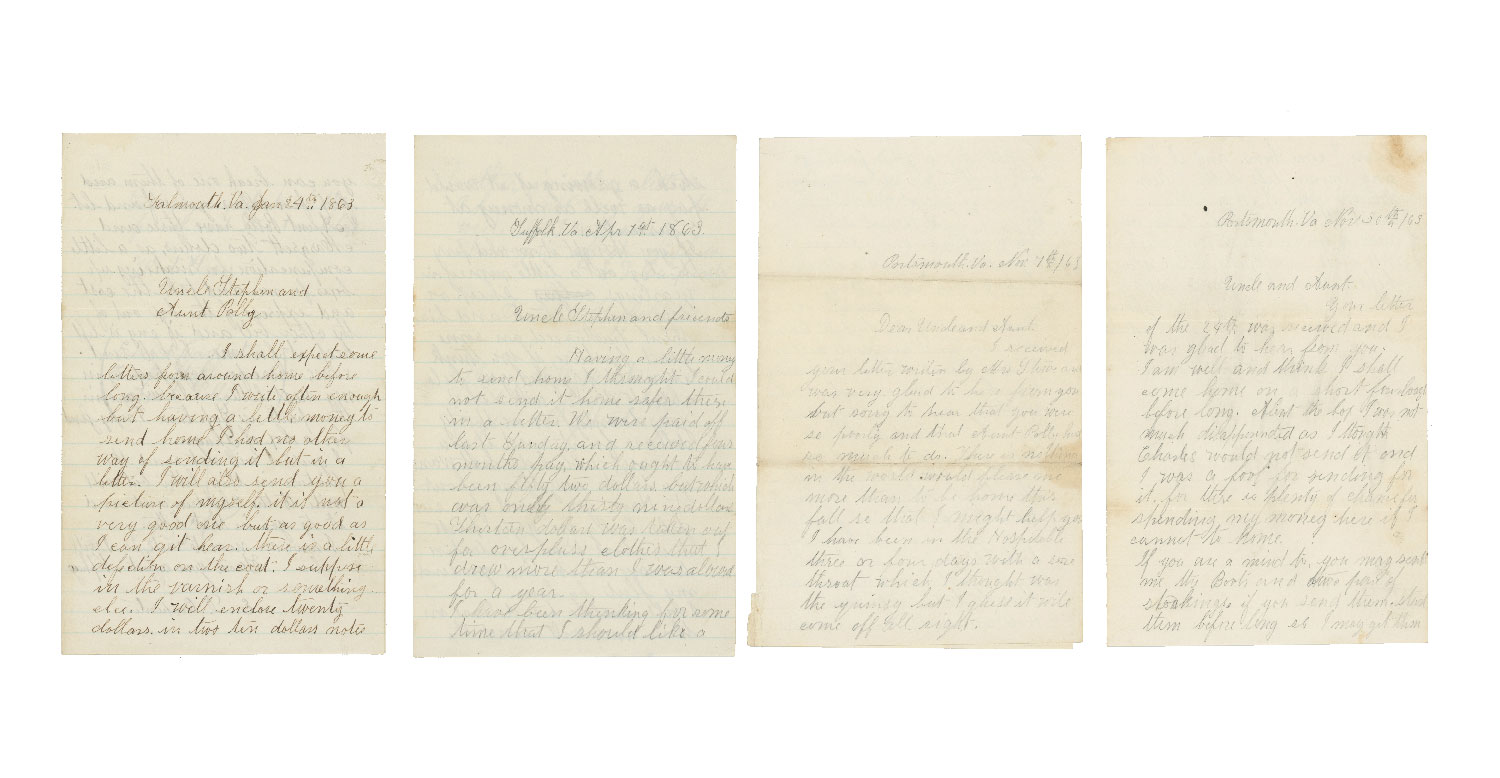 Falmouth. Va. Jan 24th 1863
Uncle Stephen and
Aunt Polly
I shall expect some
letters from around home before
long because I write often enough
but having a little money to
send home I had no other
way of sending it but in a
letter. I will also send you a
picture of myself. it is not a
very good one but as good as
I can git hear. there is a little
on the coat. I suppose
in the varnish or something
else. I will enclose twenty
dollars. in two ten dollars notes
Suffolk. Va Apr 1st 1863.
Uncle Stephen and friends
Having a little money
to send home I thought I could
not send it home safer then
in a letter We were paid off
last Sunday and received four
months pay, which ought to have
been fifty two dollars but which
was only thirty nine dollars
Thirteen was taken out
for overpluss clothes that I
drew more than I was alowed
for a year.
I have been thinking for some
time that I should like a
Portsmouth. Va. Nov. 7th /63
Dear Uncle and Aunt
I received
your letter writen by Mrs
was very glad to hear from you
but sorry to hear that you were
so poorly and that Aunt Polly had
so much to do. There is nothing
in the world would please me
more than to be home this
fall so that I might help you
I have been in the Hospital
three or four days with a sore
throat which I thought was
the quinsy but I guess it will
come off all right.
Portsmouth. Va Nov. 30th /63
Uncle and Aunt.
Your letter
of the 24th was received and I
was glad to hear from you.
I am well and think I shall
come home on a short furlough
before long. About the box I was not
much disappointed as I thought
Charles would not send it and
I was a fool for sending for
it. for there is plenty of chance for
spending my money here if I
cannot to home.
If you are a mind to. you may send
me the Boots and two pair of
stockings if you send them. send
them before long as I may get them